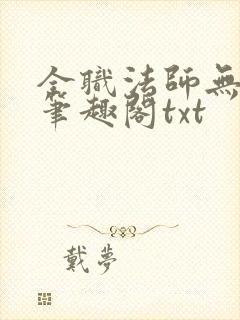 全職法師無
筆趣閣txt
戴夢